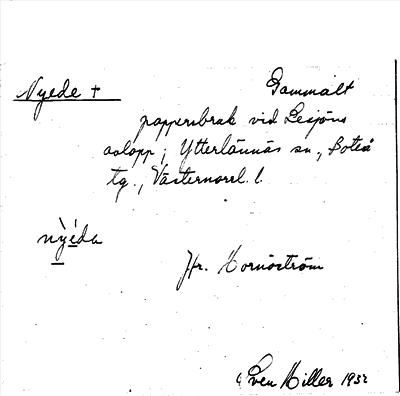 Nyede +
Gammalt
pappersbruk vid Lesjöns
avlopp; Ytterlännäs sn., Boteå
tg., Västernorrl. l.
nỳéda
Hr. Hornström
Sven Hiller 1932